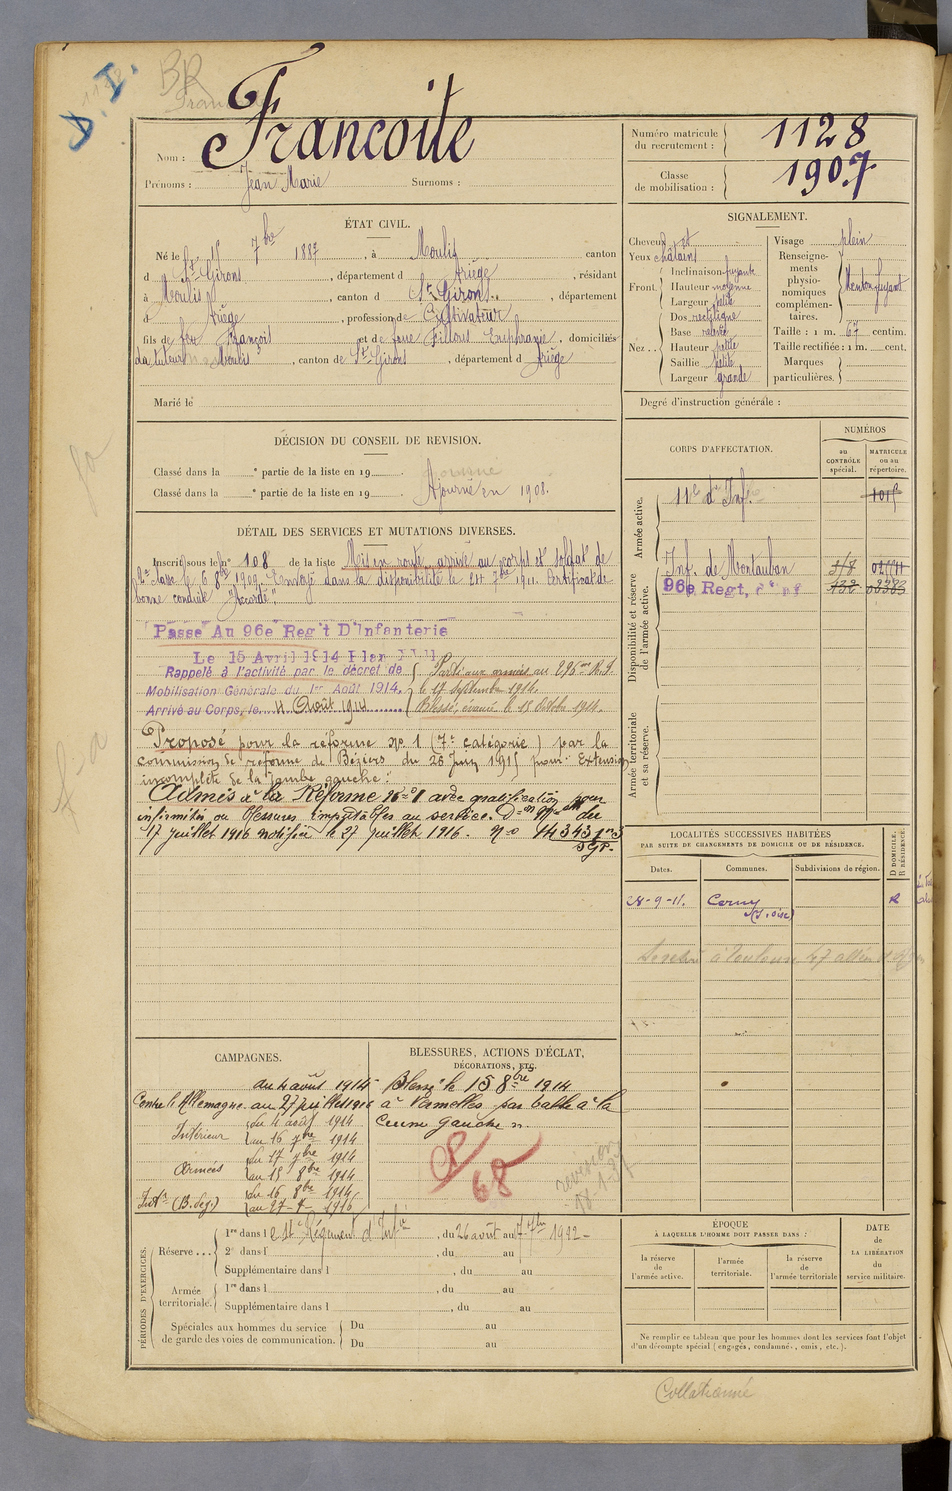 BR
Nom : Francoite
Prénoms : Jean Marie Surnoms :
Numéro matricule du recrutement : 1128
Classe de mobilisation : 1907
ÉTAT CIVIL.
Né le 7bre 1887, à Moulis canton
d St Girons, département d Ariège, résidant
à Moulis, canton d St Girons, département
d Ariège, profession de Cultivateur
fils de feu François et de feue Euphrasie, domiciliés
Moulis, canton de St Girons, département d Ariège
Marié le
SIGNALEMENT.
Cheveux et
Yeux châtains
Front. Inclinaison fuyante
Hauteur moyenne
Largeur petite
Nez Dos rectiligne
Base relevée
Hauteur petite
Saillie petite
Largeur grande
Visage plein
Renseignements physionomiques complémentaires. Menton fuyant
Taille : 1 m. 67 centim.
Taille rectifiée : 1 m. cent.
Marques particulières.
Degré d'instruction générale :
DÉCISION DU CONSEIL DE REVISION.
Classé dans la e partie de la liste en 19
Classé dans la e partie de la liste en 19 Ajourné en 1908.
CORPS D'AFFECTATION.
NUMÉROS
au CONTRÔLE spécial.
MATRICULE ou au répertoire.
Armée active.
11e d'Inf.
Disponibilité et réserve de l'armée active.
Inf. de Montauban
96e Regt,
132
Armée territoriale et sa réserve.
DÉTAIL DES SERVICES ET MUTATIONS DIVERSES.
Inscrit sous le no 108 de la liste Mis en route, arrivé au corps et soldat de
2e classe le 6 8bre 1909. Envoyé dans la disponibilité le 24 7bre 1911. Certificat de
bonne conduite "Accordé".
Passé Au 96e Reg't D'Infanterie
Le 15 Avril 1914 Plan XVII
Rappelé à l'activité par le décret de
Mobilisation Générale du 1er Août 1914.
Arrivé au Corps, le 4 Août 1914
Parti aux armées au 296me R.I.
le 17 Septembre 1914.
Blessé, évacué le 15 Octobre 1914.
Proposé pour la réforme no 1 (7e catégorie) par la
commission de réforme de Béziers du 25 Juin 1915 pour: Extension
incomplète de la jambe gauche :
Admis à la Réforme No 1 avec gratification pour
infirmités ou blessures imputables au service. Don Mlle du
17 juillet 1916 notifiée le 27 juillet 1916. no 14343
LOCALITÉS SUCCESSIVES HABITÉES
PAR SUITE DE CHANGEMENTS DE DOMICILE OU DE RÉSIDENCE.
Dates. Communes. Subdivisions de région. D DOMICILE. R RÉSIDENCE.
28-9-11. Cerny R
à Toulouse 47
CAMPAGNES.
Contre l'Allemagne du 4 août 1914
au 27 juillet 1916
Intérieur du 4 août 1914
au 16 7bre 1914
Armées du 17 7bre 1914
au 15 8bre 1914
Intr (B. deg.) du 16 8bre 1914
au 27-7-1916
BLESSURES, ACTIONS D'ÉCLAT,
DÉCORATIONS, ETC.
Blessé le 15 8bre 1914
à Vermelles par balle à la
cuisse gauche
68
PÉRIODES D'EXERCICES.
Réserve 1re dans l e 11e Régiment d'Infie, du 26 août au 7bre 1912
2e dans l , du au
Supplémentaire dans l , du au
Armée territoriale. 1re dans l , du au
Supplémentaire dans l , du au
Spéciales aux hommes du service de garde des voies de communication.
Du au
Du au
ÉPOQUE
À LAQUELLE L'HOMME DOIT PASSER DANS :
la réserve de l'armée active.
l'armée territoriale.
la réserve de l'armée territoriale
DATE de LA LIBÉRATION du service militaire.
Ne remplir ce tableau que pour les hommes dont les services font l'objet
d'un décompte spécial (engagés, condamnés, omis, etc.).
Collationné